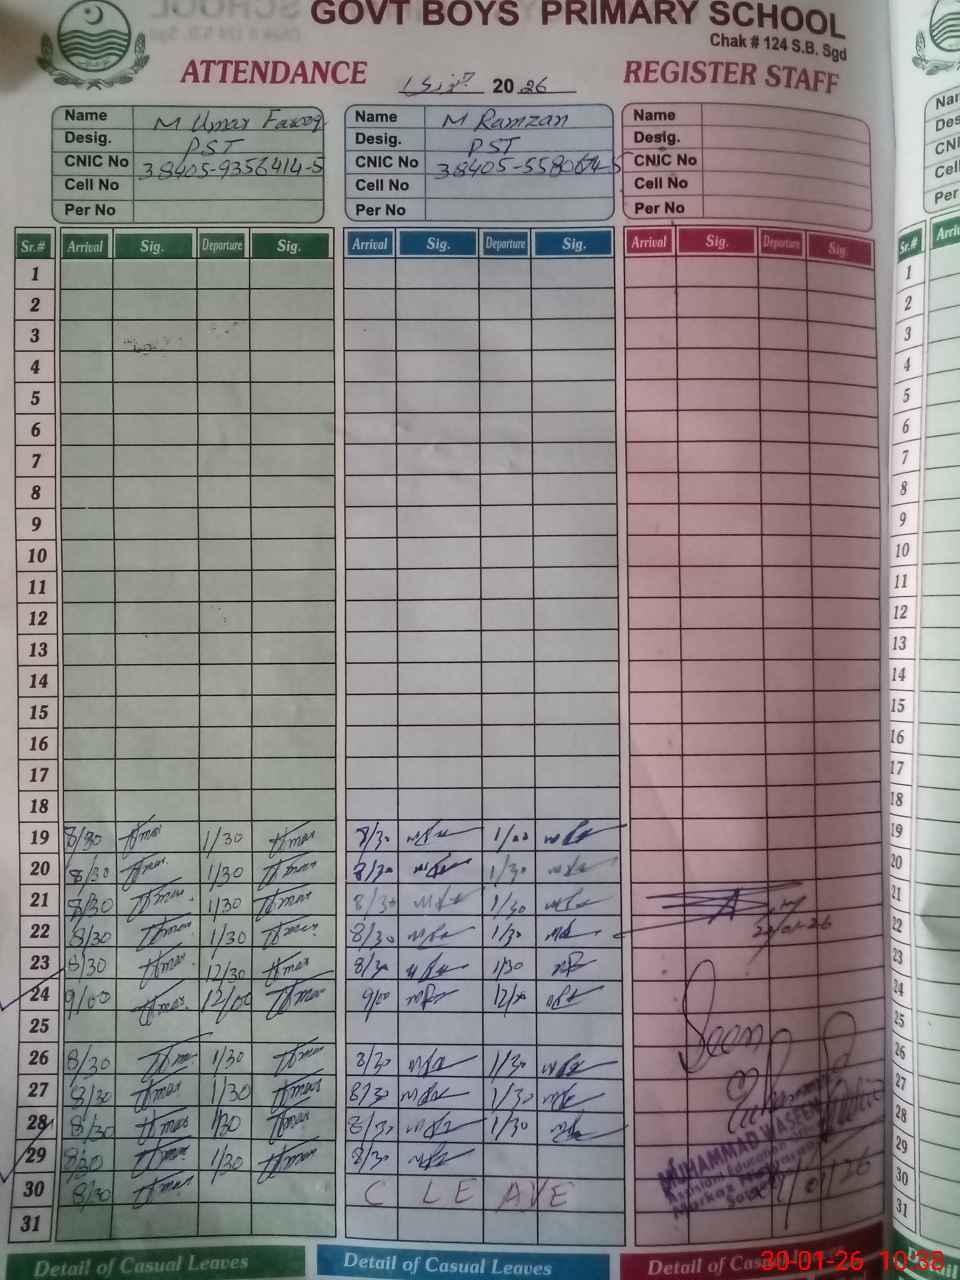 GOVT BOYS PRIMARY SCHOOL
Chak # 124 S.B. Sgd
ATTENDANCE 2026 REGISTER STAFF
Name M Umar Farooq Name M Ramzan Name
Desig. PST Desig. PST Desig.
CNIC No 38405-9356414-5 CNIC No 38405-5580674-5 CNIC No
Cell No Cell No Cell No
Per No Per No Per No
Sr.# Arrival Sig. Departure Sig. Arrival Sig. Departure Sig. Arrival Sig. Departure Sig. Sr.#
1 1
2 2
3 3
4 4
5 5
6 6
7 7
8 8
9 9
10 10
11 11
12 12
13 13
14 14
15 15
16 16
17 17
18 18
19 8/30 Umar 1/30 Umar 8/30 1/00 19
20 8/30 Umar 1/30 Umar 8/30 1/30 20
21 8/30 Umar 1/30 Umar 8/30 1/30 21
22 8/30 Umar 1/30 Umar 8/30 1/30 22
23 8/30 Umar 12/30 Umar 8/30 1/30 23
24 9/00 Umar 12/00 Umar 9/00 12/00 24
25 25
26 8/30 Umar 1/30 Umar 8/30 1/30 Seen 26
27 8/30 Umar 1/30 Umar 8/30 1/30 27
28 8/30 Umar 1/30 Umar 8/30 1/30 28
29 8/30 Umar 1/30 Umar 8/30 MUHAMMAD WASEEM 29
30 8/30 Umar C LEAVE 30
31 31
Detail of Casual Leaves Detail of Casual Leaves Detail of
30-01-26 10:38